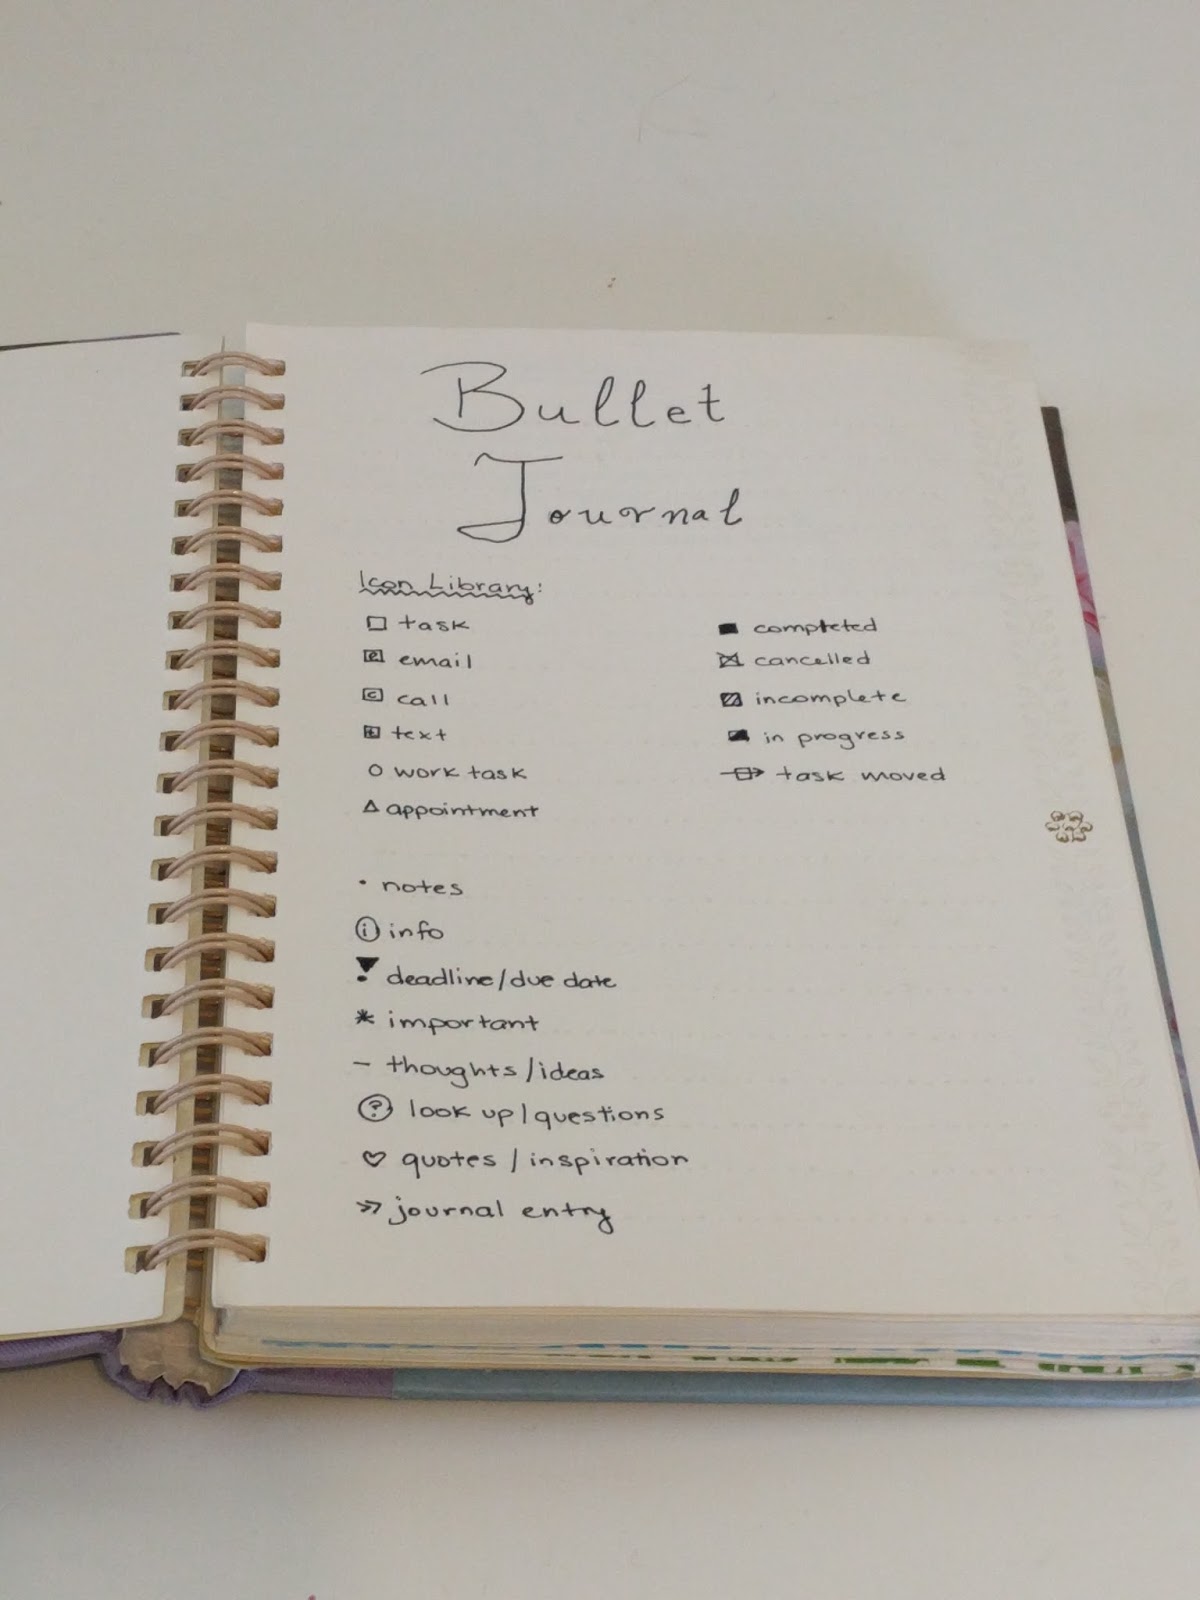 Bullet
Journal
Icon Library:
□ task
e email
c call
t text
○ work task
△ appointment
■ completed
☒ cancelled
▨ incomplete
◪ in progress
task moved
• notes
ⓘ info
! deadline/due date
* important
– thoughts/ideas
? look up/questions
♡ quotes/inspiration
>> journal entry